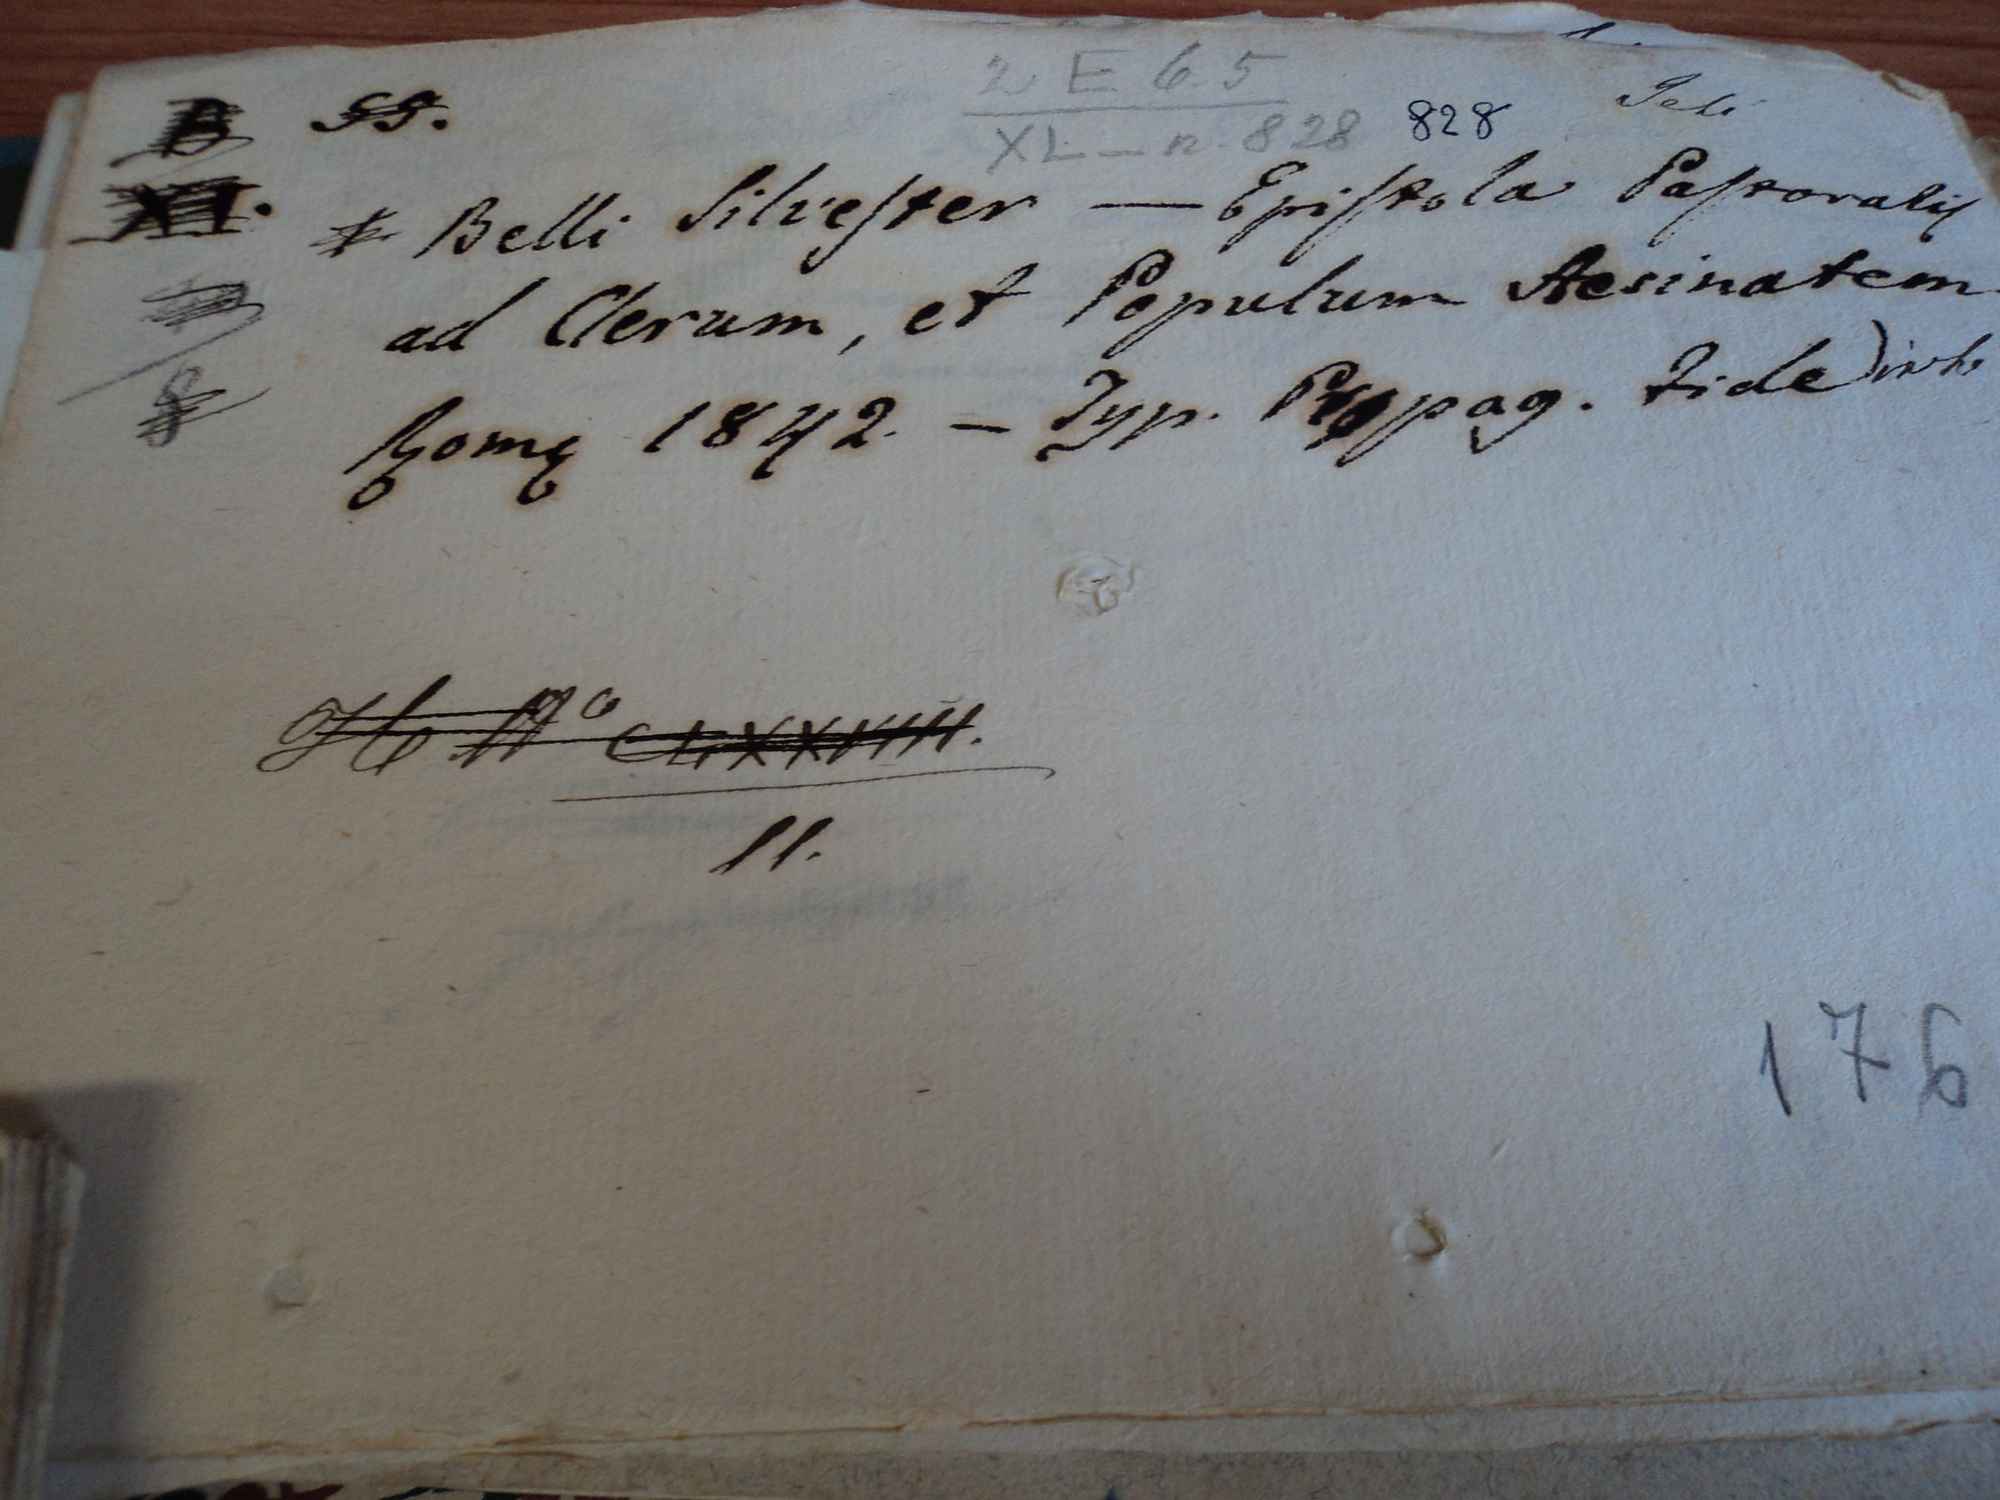 2 E 6.5
XL — n. 828 828 Jesi
B SS.
XI. * Belli Silvester — Epistola Pastoralis
ad Clerum, et Populum Aesinatem
Romę 1842. — Typ. Propag. Fide) in 4o
CLXXVIIII.
11.
176